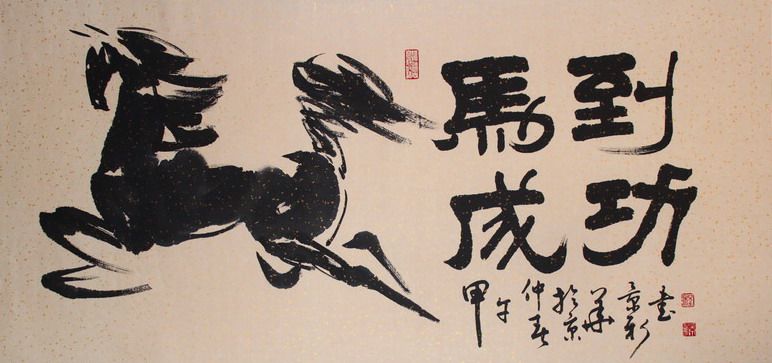 馬到
成功
甲午仲春於京華景新書